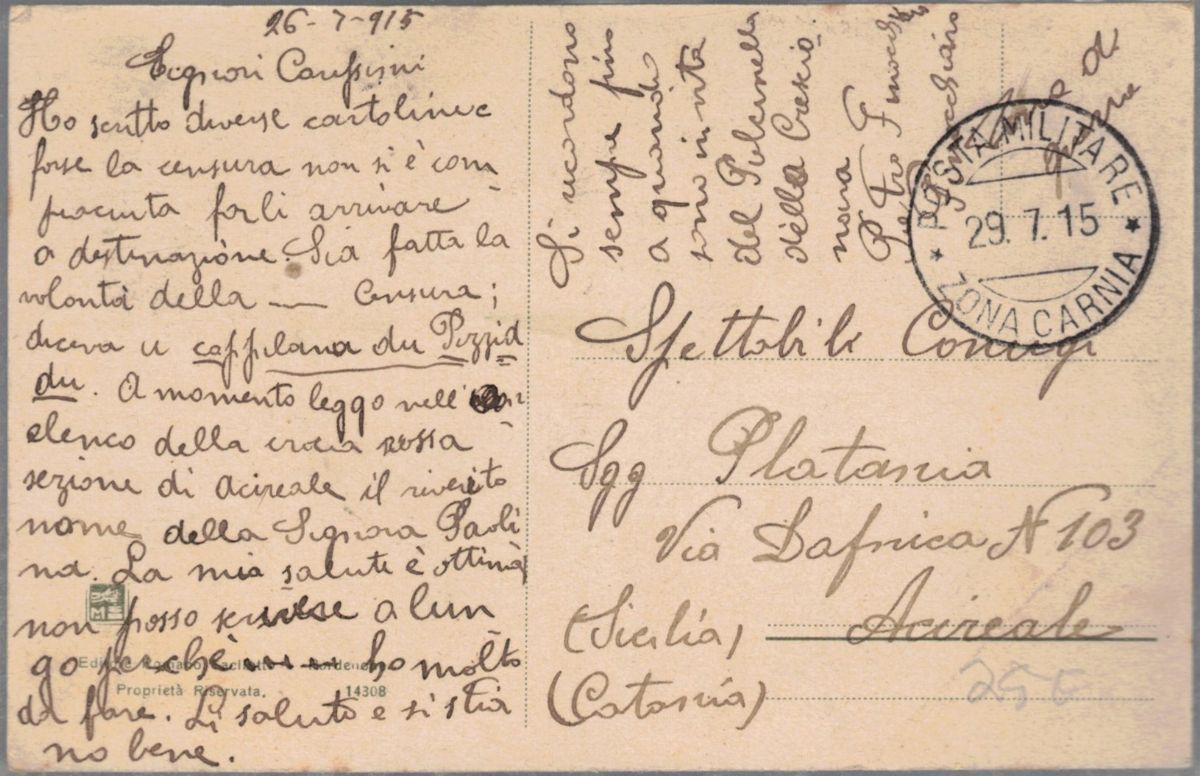 26-7-915
Signori Carissimi
Ho scritto diverse cartoline e
forse la censura non si è com
piaciuta farli arrivare
a destinazione. Sia fatta la
volontà della — Censura;
diceva u cappilanu du Pizzid
du. A momento leggo nell'
elenco della croce rossa
sezione di Acireale il riverito
nome della Signora Paoli
na. La mia salute è ottima
non posso scrivere a lun
go perchè ho molto
da fare. Li saluto e si stia
no bene.
Si ricordono
sempre più
a quando
sono in vita
del Pulcinella
della Crexia
nara
Pietro
POSTA MILITARE
29. 7. 15
ZONA CARNIA
Spettabili Coniugi
Sgg Platania
Via Dafnica N 103
(Sicilia) Acireale
(Catania)
25 E
Proprietà Riservata. 14308